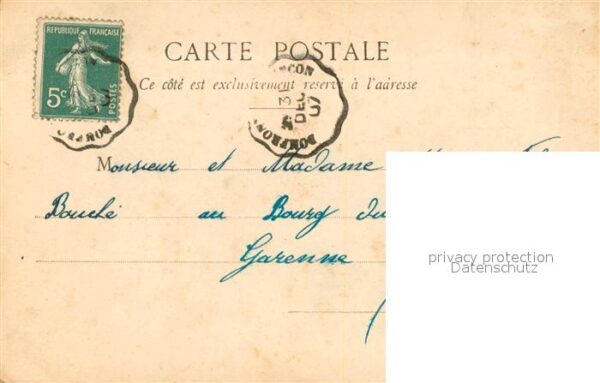 REPUBLIQUE FRANÇAISE
5c POSTES
CARTE POSTALE
Ce côté est exclusivement réservé à l'adresse
DEC
07
DOMFRON
Monsieur et Madame
Bouché au Bourg du
Garenne
privacy protection
Datenschutz